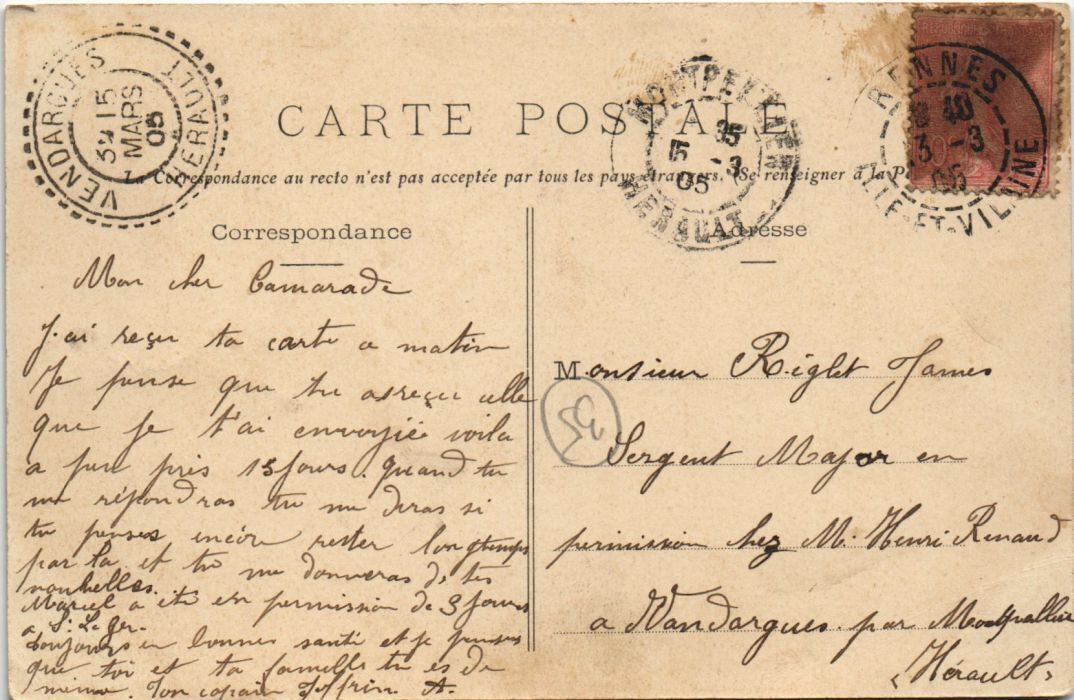 VENDARGUES
HERAULT
3E 15
MARS
05
MONTPELLIER
5 35
-3
05
HERAULT
RENNES
40
3 -3
05
ILLE-ET-VILAINE
CARTE POSTALE
La Correspondance au recto n'est pas acceptée par tous les pays étrangers. (Se renseigner à la P
Correspondance
Mon cher Camarade
J'ai reçu ta carte ce matin
Je pense que tu as reçu celle
que je t'ai envoyiée voila
a peu près 15 jours. quand tu
me répondras tu me diras si
tu penses encore rester longtemps
par la et tu me donneras de tes
nouvelles.
Marcel a été en permission de 3 jours
a St Leger.
toujours en bonnes santé et je penses
que toi et ta famille tu es de
même. Ton copain A.
Adresse
Monsieur Riglet James
Sergent Major en
permission chez M. Henri Renaud
a Vandargues par Montpellier
(Hérault)